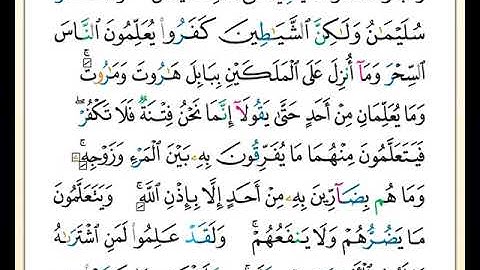 سُلَيْمَٰنُ وَلَٰكِنَّ ٱلشَّيَٰطِينَ كَفَرُوا۟ يُعَلِّمُونَ ٱلنَّاسَ
ٱلسِّحْرَ وَمَآ أُنزِلَ عَلَى ٱلْمَلَكَيْنِ بِبَابِلَ هَٰرُوتَ وَمَٰرُوتَ ۚ
وَمَا يُعَلِّمَانِ مِنْ أَحَدٍ حَتَّىٰ يَقُولَآ إِنَّمَا نَحْنُ فِتْنَةٌ فَلَا تَكْفُرْ ۖ
فَيَتَعَلَّمُونَ مِنْهُمَا مَا يُفَرِّقُونَ بِهِۦ بَيْنَ ٱلْمَرْءِ وَزَوْجِهِۦ ۚ
وَمَا هُم بِضَآرِّينَ بِهِۦ مِنْ أَحَدٍ إِلَّا بِإِذْنِ ٱللَّهِ ۚ وَيَتَعَلَّمُونَ
مَا يَضُرُّهُمْ وَلَا يَنفَعُهُمْ ۚ وَلَقَدْ عَلِمُوا۟ لَمَنِ ٱشْتَرَىٰهُ